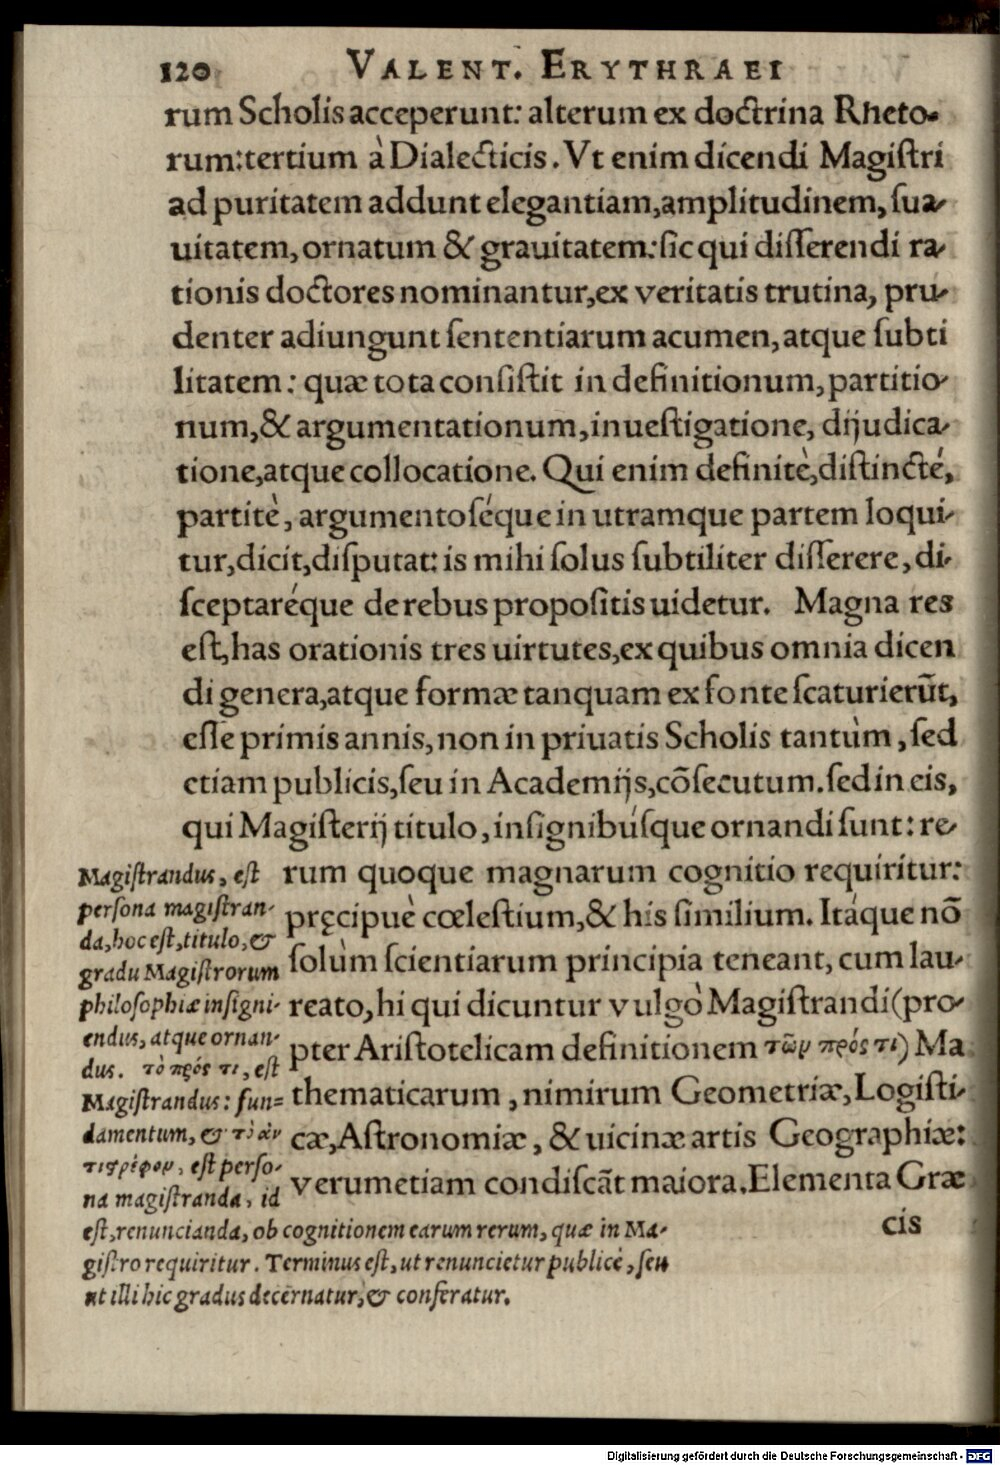 120 VALENT. ERYTHRAEI
rum Scholis acceperunt: alterum ex doctrina Rheto-
rum: tertium à Dialecticis. Vt enim dicendi Magiſtri
ad puritatem addunt elegantiam, amplitudinem, ſua-
uitatem, ornatum & grauitatem: ſic qui diſſerendi ra-
tionis doctores nominantur, ex veritatis trutina, pru-
denter adiungunt ſententiarum acumen, atque ſubti
litatem: quæ tota conſiſtit in definitionum, partitio-
num, & argumentationum, inueſtigatione, dijudica-
tione, atque collocatione. Qui enim definitè, diſtincté,
partitè, argumentoſéque in utramque partem loqui-
tur, dicit, diſputat: is mihi ſolus ſubtiliter diſſerere, di-
ſceptaréque de rebus propoſitis uidetur. Magna res
eſt, has orationis tres uirtutes, ex quibus omnia dicen
di genera, atque formæ tanquam ex fonte ſcaturierũt,
eſſe primis annis, non in priuatis Scholis tantùm, ſed
etiam publicis, ſeu in Academijs, cõſecutum. ſed in eis,
qui Magiſterij titulo, inſignibúſque ornandi ſunt: re-
rum quoque magnarum cognitio requiritur:
pręcipuè cœleſtium, & his ſimilium. Itáque nõ
ſolùm ſcientiarum principia teneant, cum lau-
reato, hi qui dicuntur vulgò Magiſtrandi (pro-
pter Ariſtotelicam definitionem τῶν πρός τι) Ma
thematicarum, nimirum Geometriæ, Logiſti-
cæ, Aſtronomiæ, & uicinæ artis Geographiæ:
verumetiam condiſcãt maiora. Elementa Græ
cis
Magiſtrandus, eſt
perſona magiſtran-
da, hoc eſt, titulo, &
gradu Magiſtrorum
philoſophiæ inſigni-
endus, atque ornan-
dus. τὸ πρός τι, eſt
Magiſtrandus: fun-
damentum, & τὸ ἀν
τιςρέφον, eſt perſo-
na magiſtranda, id
eſt, renuncianda, ob cognitionem earum rerum, quæ in Ma-
giſtro requiritur. Terminus eſt, ut renuncietur publicè, ſeu
ut illi hic gradus decernatur, & conferatur.
Digitalisierung gefördert durch die Deutsche Forschungsgemeinschaft - DFG